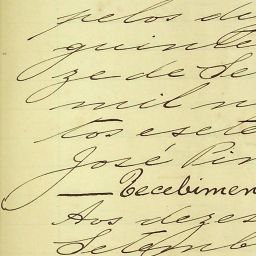 pelos du
guinte
ze de Se
mil n
tos e sete
José Rin
— Recebimen
Aos dezes
Setemb